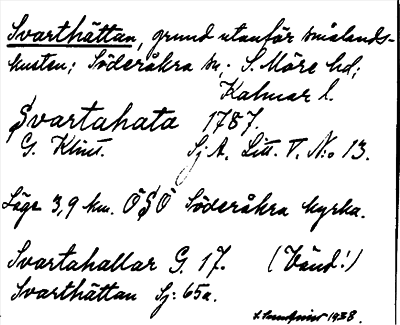 Svarthättan, grund utanför smålands-
kusten; Söderåkra sn,. S. Möre hd;
Kalmar l.
Svartahata 1787.
G. Klint. Sj. A. Litt. V. N:o 13.
Läge 3,9 km. ÖSÖ Söderåkra kyrka.
Svartahallar G. 17. (Vänd!)
Svarthättan Sj: 65a.
1938.